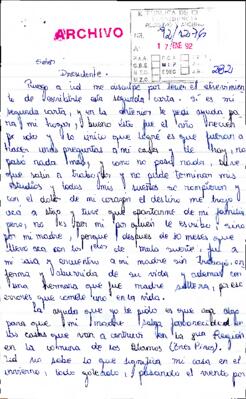 ARCHIVO
92/1276
17 ENE 92
Señor
Presidente.
Ruego a ud me disculpe por tener el atrevimien
to de escribirle esta segunda carta. Si es mi
segunda carta, y en la anterior le pedi ayuda pa
ra mi hogar, bueno
pe solo y lo unico que logré es que fueran a
hacer unas preguntas a mi casa y de hay, no
pasó nada mas, y como no pasó nada, tuve
que salir a trabajar y no pude terminar mis
estudios y todos mis sueños se rompieron y
con el dolor de mi corazon el destino me trajo
aca a stgo y tuve que apartarme de mi familia
pero, no es por mi por quien le escribo, sino
por mi madre, porque despues de 10 meses que
llevo aca con los de mala suerte, fui a
mi casa y encuentro a mi madre sin trabajo, en
ferma y aburrida de su vida y ademas con
una hermana que fue madre soltera, por
errores que comete uno en la vida.
La ayuda que yo le pido es que haga algo
para que mi madre salga favorecida en
las casas que van a entregar en la Region
en la comuna de los Alamos (Tres Pinos).
Ud no sabe lo que significa mi casa en el
invierno, todo goteando, pasando el viento por